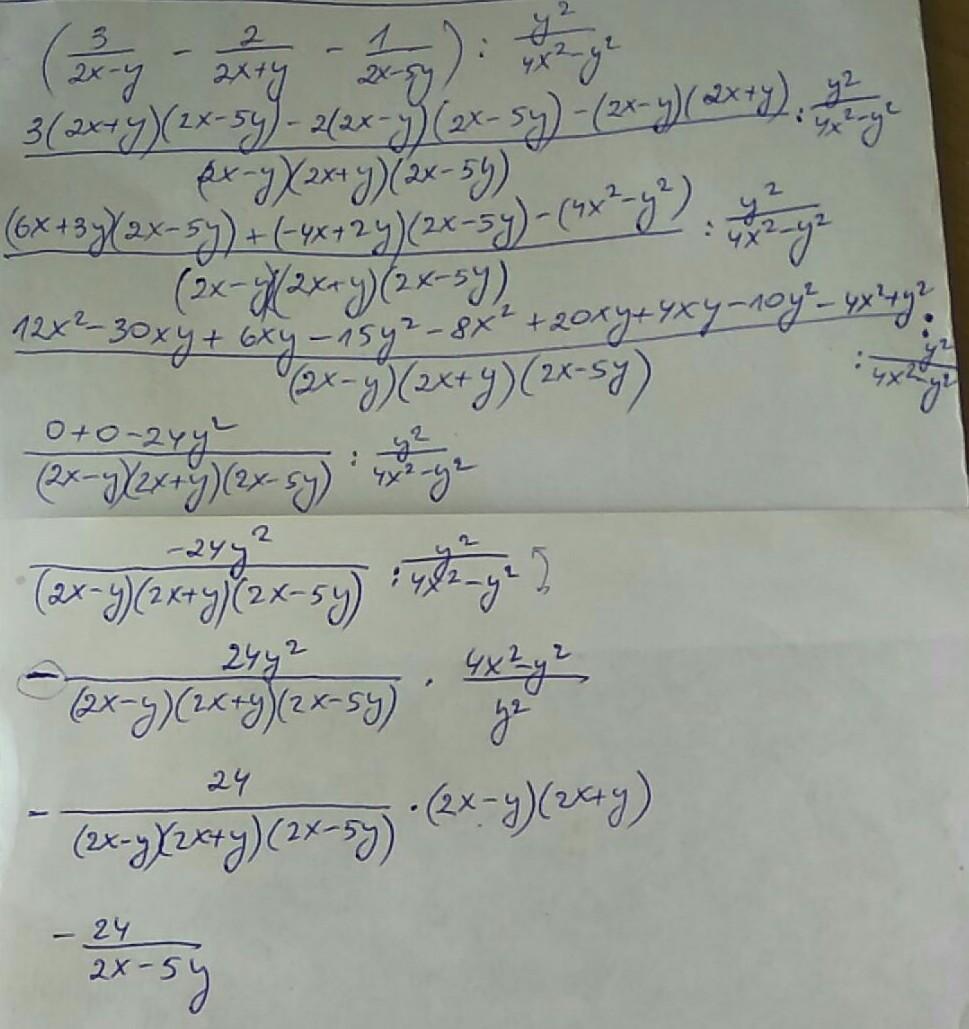 (3/(2x-y) - 2/(2x+y) - 1/(2x-5y)) : y²/(4x²-y²)
(3(2x+y)(2x-5y) - 2(2x-y)(2x-5y) - (2x-y)(2x+y))/((2x-y)(2x+y)(2x-5y)) : y²/(4x²-y²)
((6x+3y)(2x-5y) + (-4x+2y)(2x-5y) - (4x²-y²))/((2x-y)(2x+y)(2x-5y)) : y²/(4x²-y²)
(12x² - 30xy + 6xy - 15y² - 8x² + 20xy + 4xy - 10y² - 4x² + y²)/((2x-y)(2x+y)(2x-5y)) : : y²/(4x²-y²)
(0+0-24y²)/((2x-y)(2x+y)(2x-5y)) : y²/(4x²-y²)
(-24y²)/((2x-y)(2x+y)(2x-5y)) : y²/(4x²-y²)
- 24y²/((2x-y)(2x+y)(2x-5y)) · (4x²-y²)/y²
- 24/((2x-y)(2x+y)(2x-5y)) · (2x-y)(2x+y)
- 24/(2x-5y)